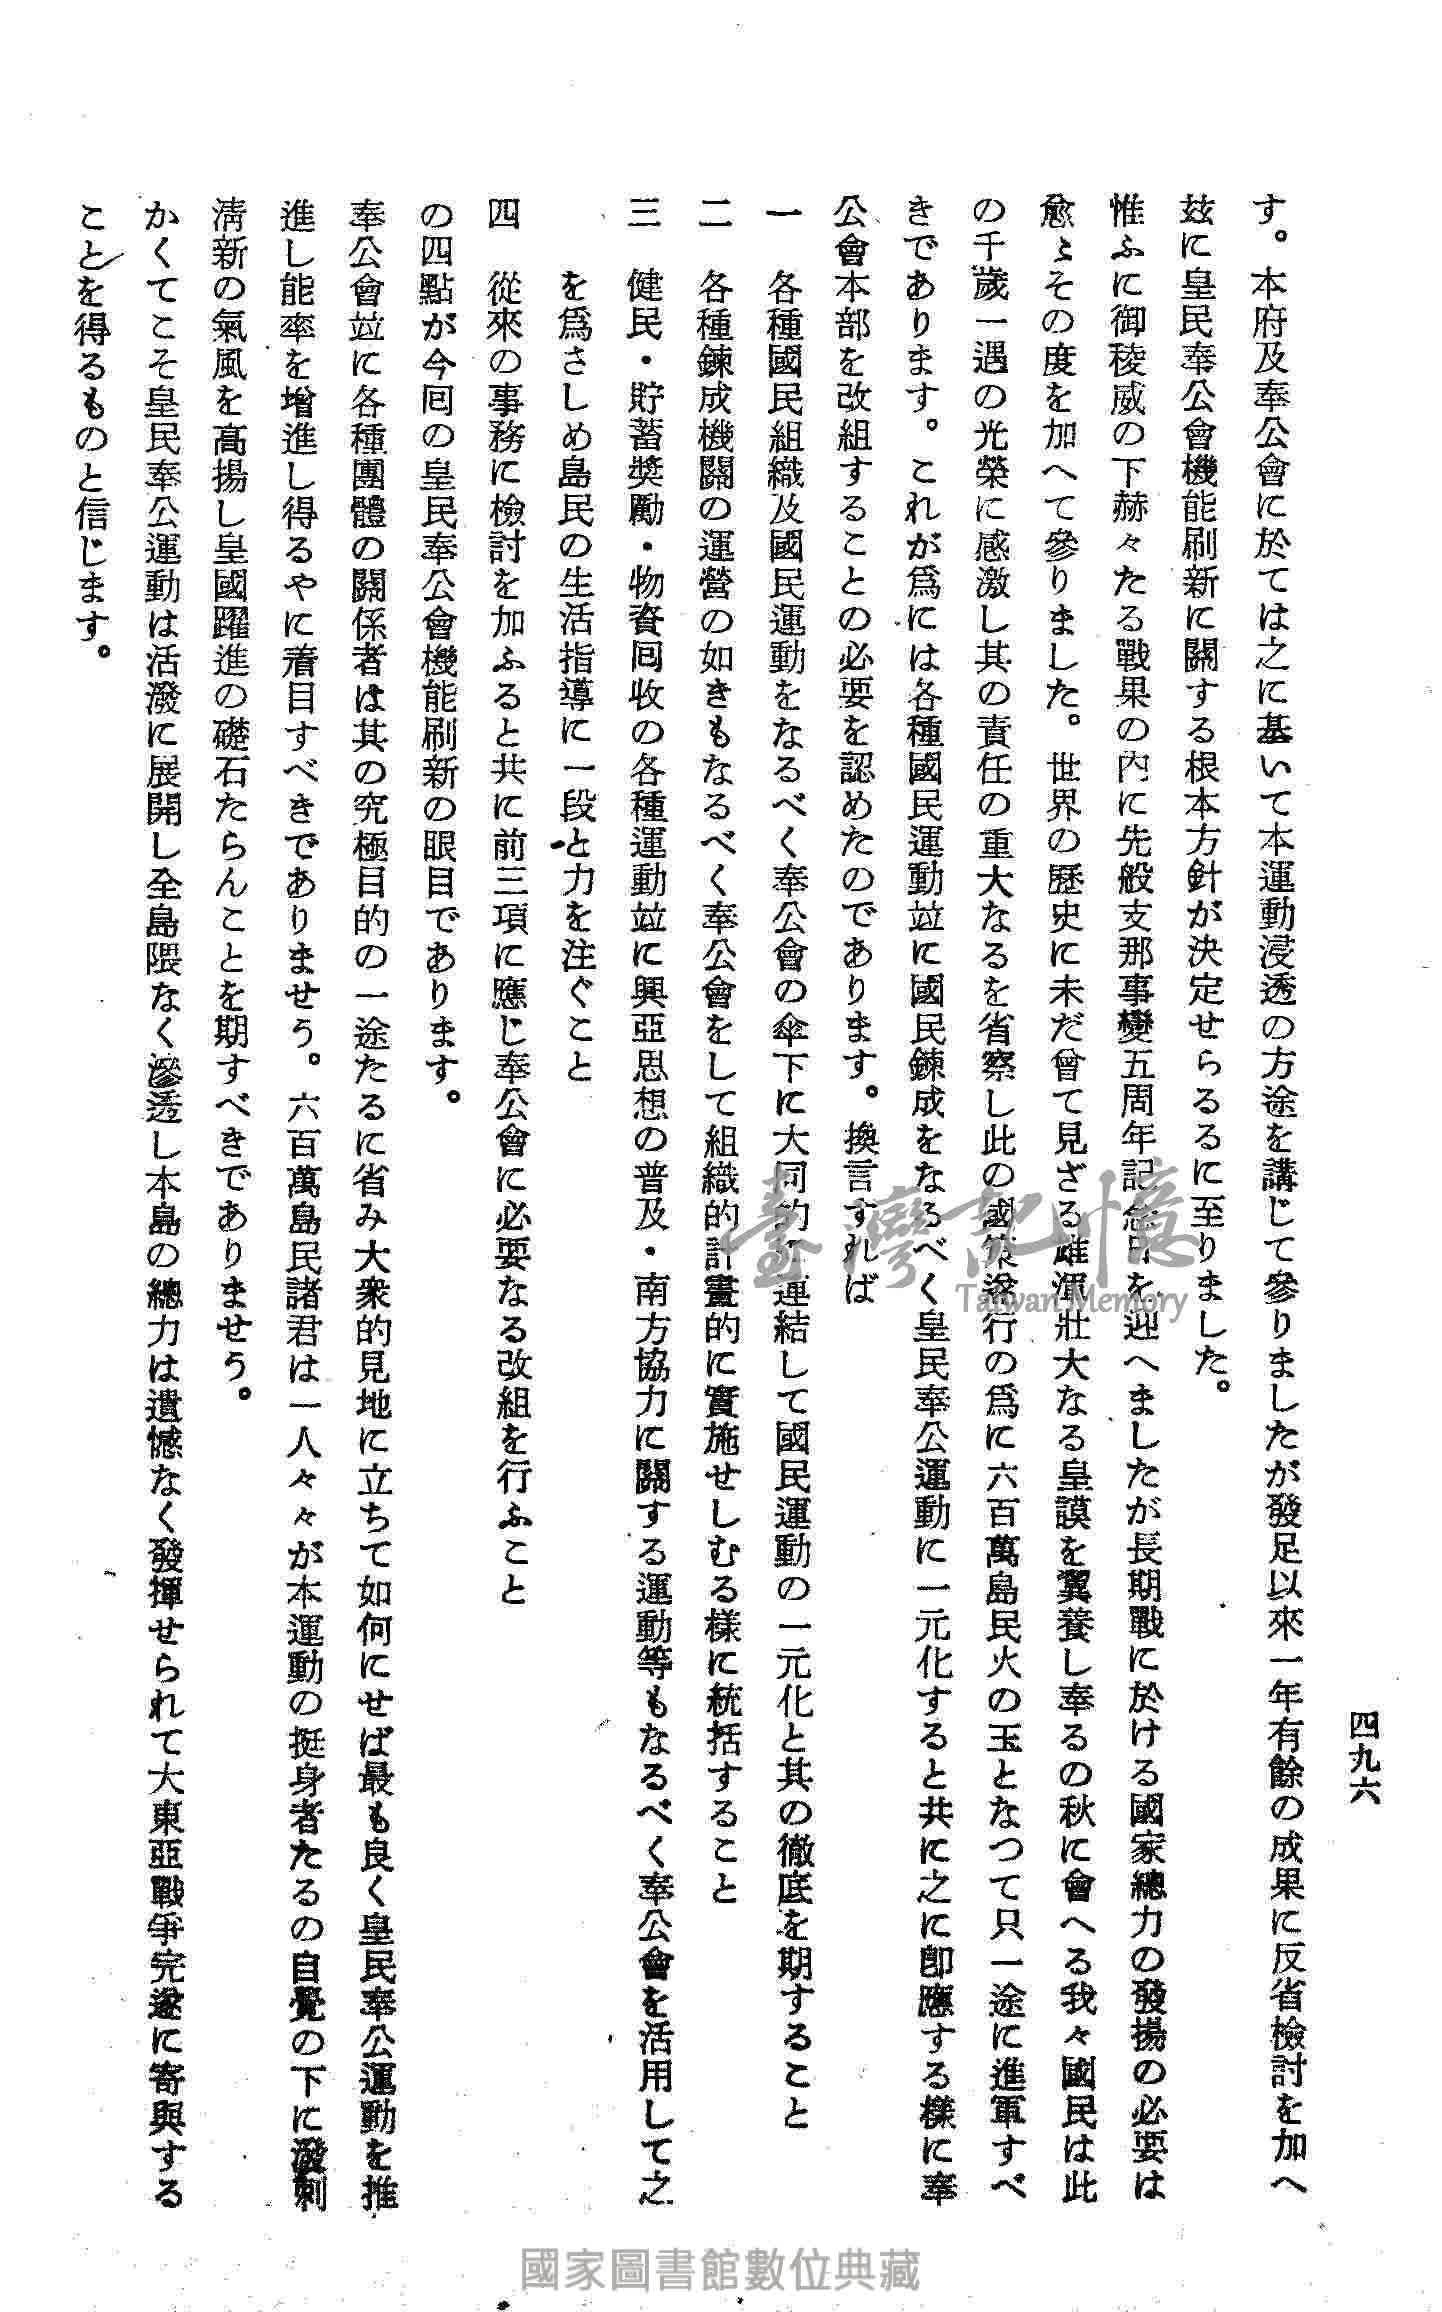 四九六
す。本府及奉公會に於ては之に基いて本運動浸透の方途を講じて參りましたが發足以來一年有餘の成果に反省檢討を加へ
玆に皇民奉公會機能刷新に關する根本方針が決定せらるるに至りました。
惟ふに御稜威の下赫々たる戰果の內に先般支那事變五周年記念日を迎へましたが長期戰に於ける國家總力の發揚の必要は
愈〻その度を加へて參りました。世界の歷史に未だ曾て見ざる雄渾壯大なる皇謨を翼養し奉るの秋に會へる我々國民は此
の千歲一遇の光榮に感激し其の責任の重大なるを省察し此の國策遂行の爲に六百萬島民火の玉となつて只一途に進軍すべ
きであります。これが爲には各種國民運動竝に國民鍊成をなるべく皇民奉公運動に一元化すると共に之に卽應する樣に奉
公會本部を改組することの必要を認めたのであります。換言すれば
一 各種國民組織及國民運動をなるべく奉公會の傘下に大同的に連結して國民運動の一元化と其の徹底を期すること
二 各種鍊成機關の運營の如きもなるべく奉公會をして組織的計畫的に實施せしむる樣に統括すること
三 健民・貯蓄獎勵・物資回收の各種運動竝に興亞思想の普及・南方協力に關する運動等もなるべく奉公會を活用して之
を爲さしめ島民の生活指導に一段と力を注ぐこと
四 從來の事務に檢討を加ふると共に前三項に應じ奉公會に必要なる改組を行ふこと
の四點が今回の皇民奉公會機能刷新の眼目であります。
奉公會竝に各種團體の關係者は其の究極目的の一途たるに省み大衆的見地に立ちて如何にせば最も良く皇民奉公運動を推
進し能率を增進し得るやに着目すべきでありませう。六百萬島民諸君は一人々々が本運動の挺身者たるの自覺の下に潑剌
淸新の氣風を高揚し皇國躍進の礎石たらんことを期すべきでありませう。
かくてこそ皇民奉公運動は活潑に展開し全島隈なく滲透し本島の總力は遺憾なく發揮せられて大東亞戰爭完遂に寄與する
ことを得るものと信じます。
臺灣記憶
Taiwan Memory
國家圖書館數位典藏